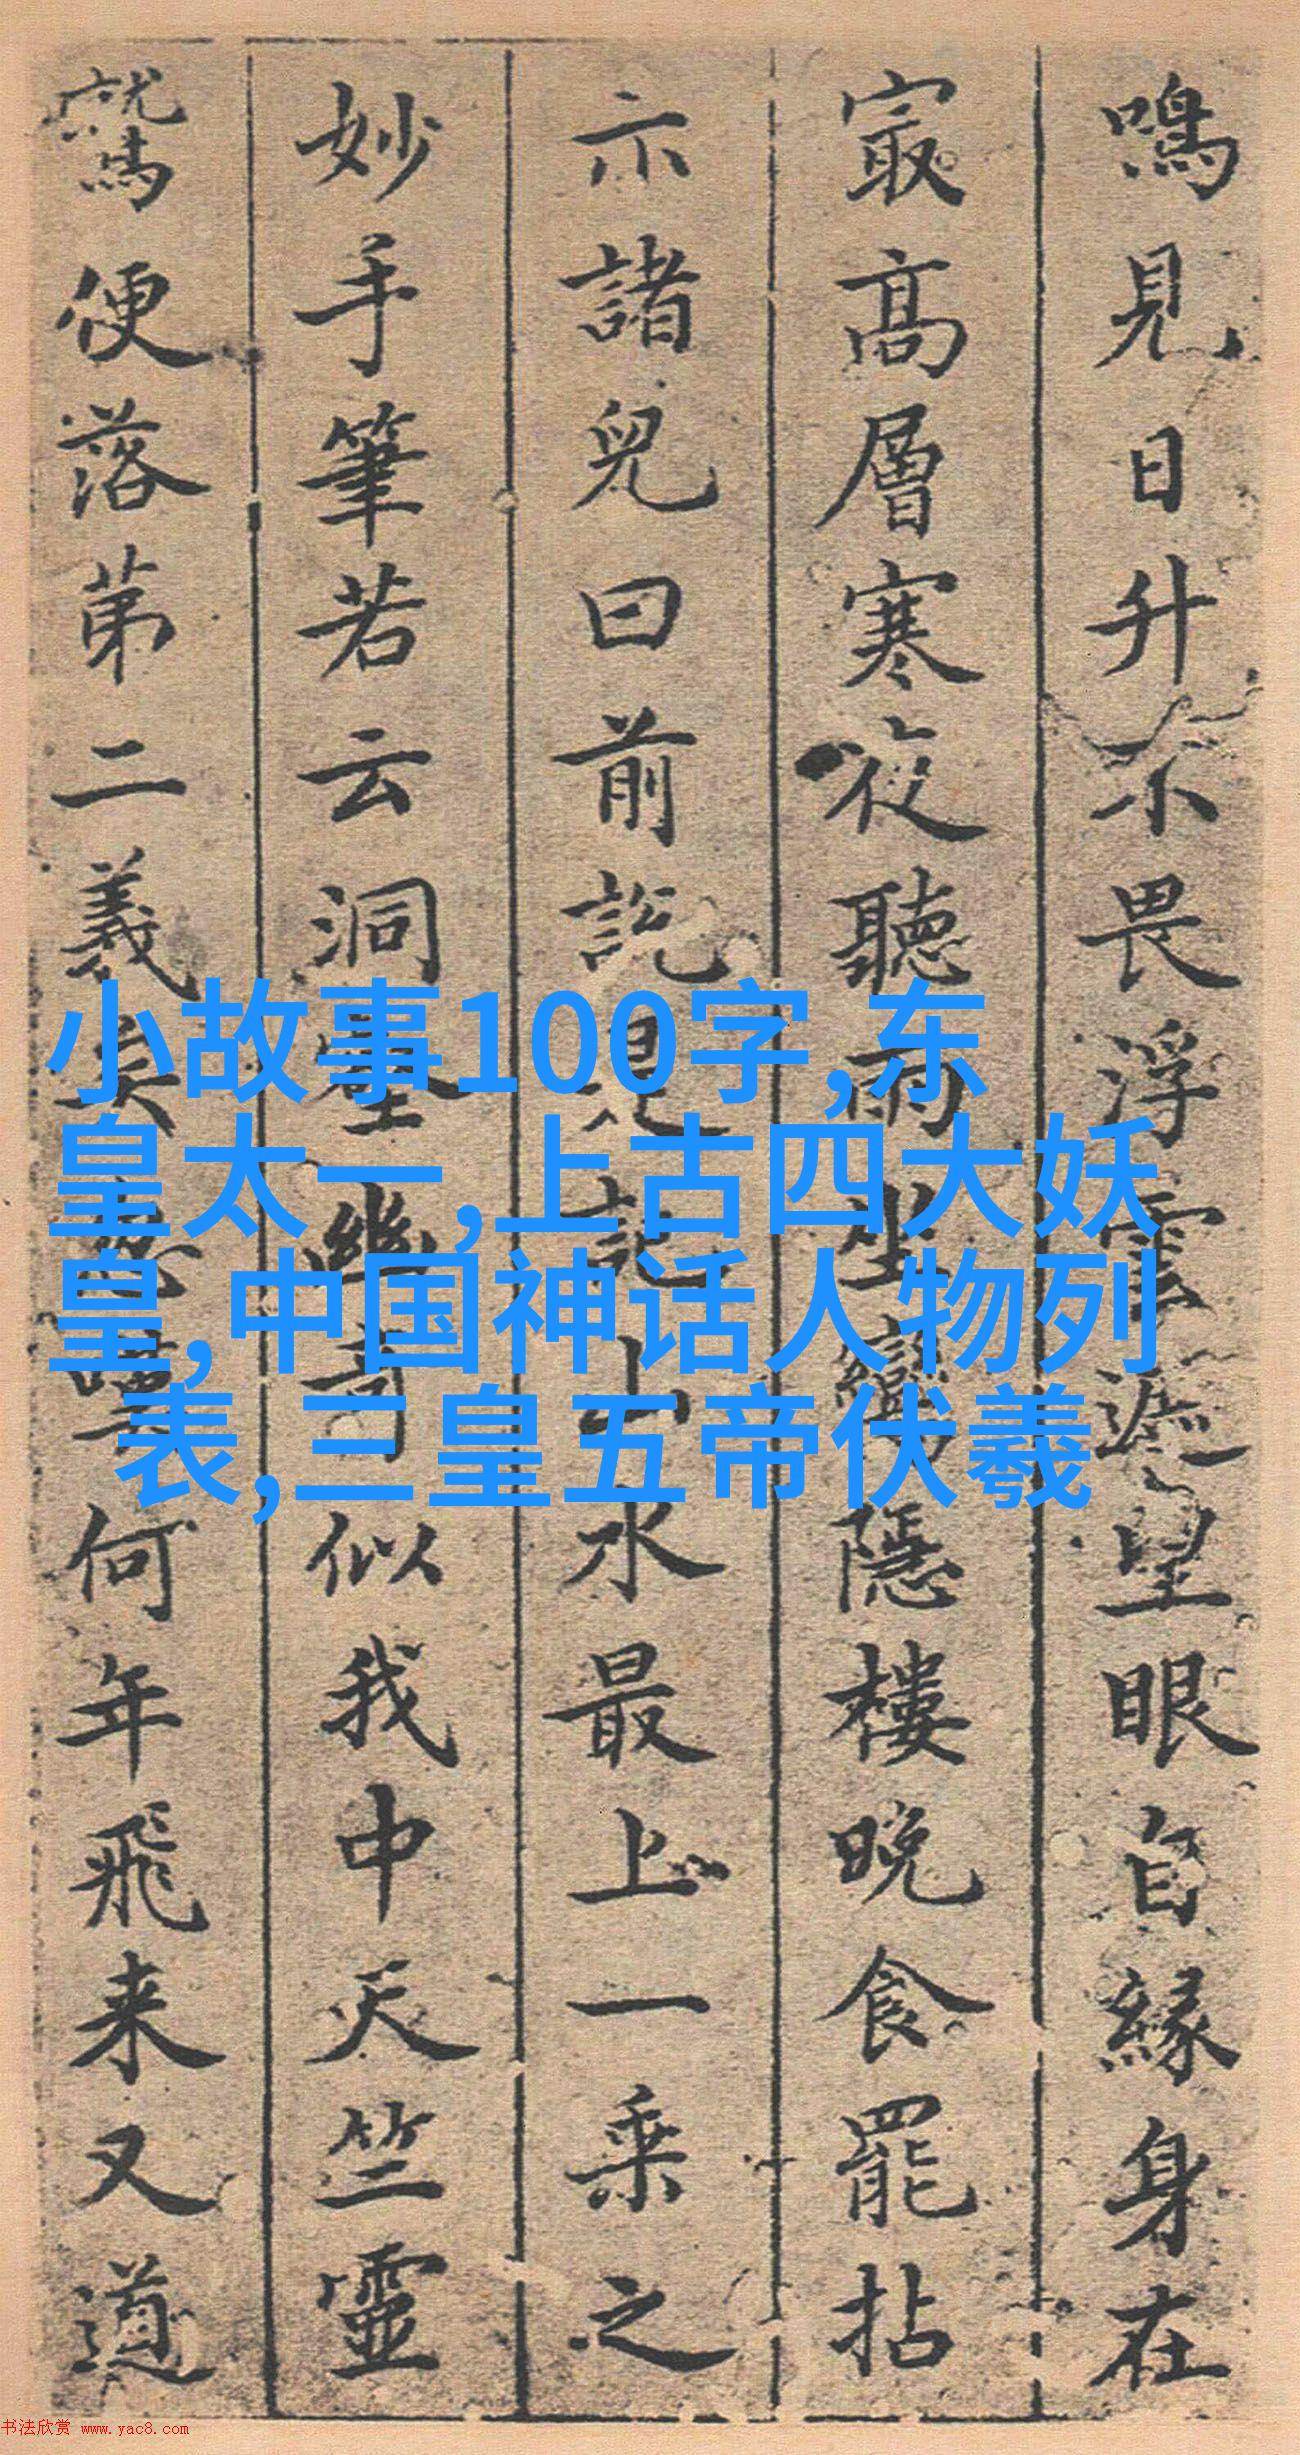 鳴見日升不畏浮雲遮望眼自緣身在
㝡高層寒夜聽雨坐隱樓晚食罷拈
示諸兒曰前説見山水最上一乘之
妙手筆若云洞壑幽奇似我中天竺靈
鷲便落第二義矣何年飛来又道
小故事100字,东
皇太一,上古四大妖
皇,中国神话人物列
表,三皇五帝伏羲
书法欣赏 www.yac8.com